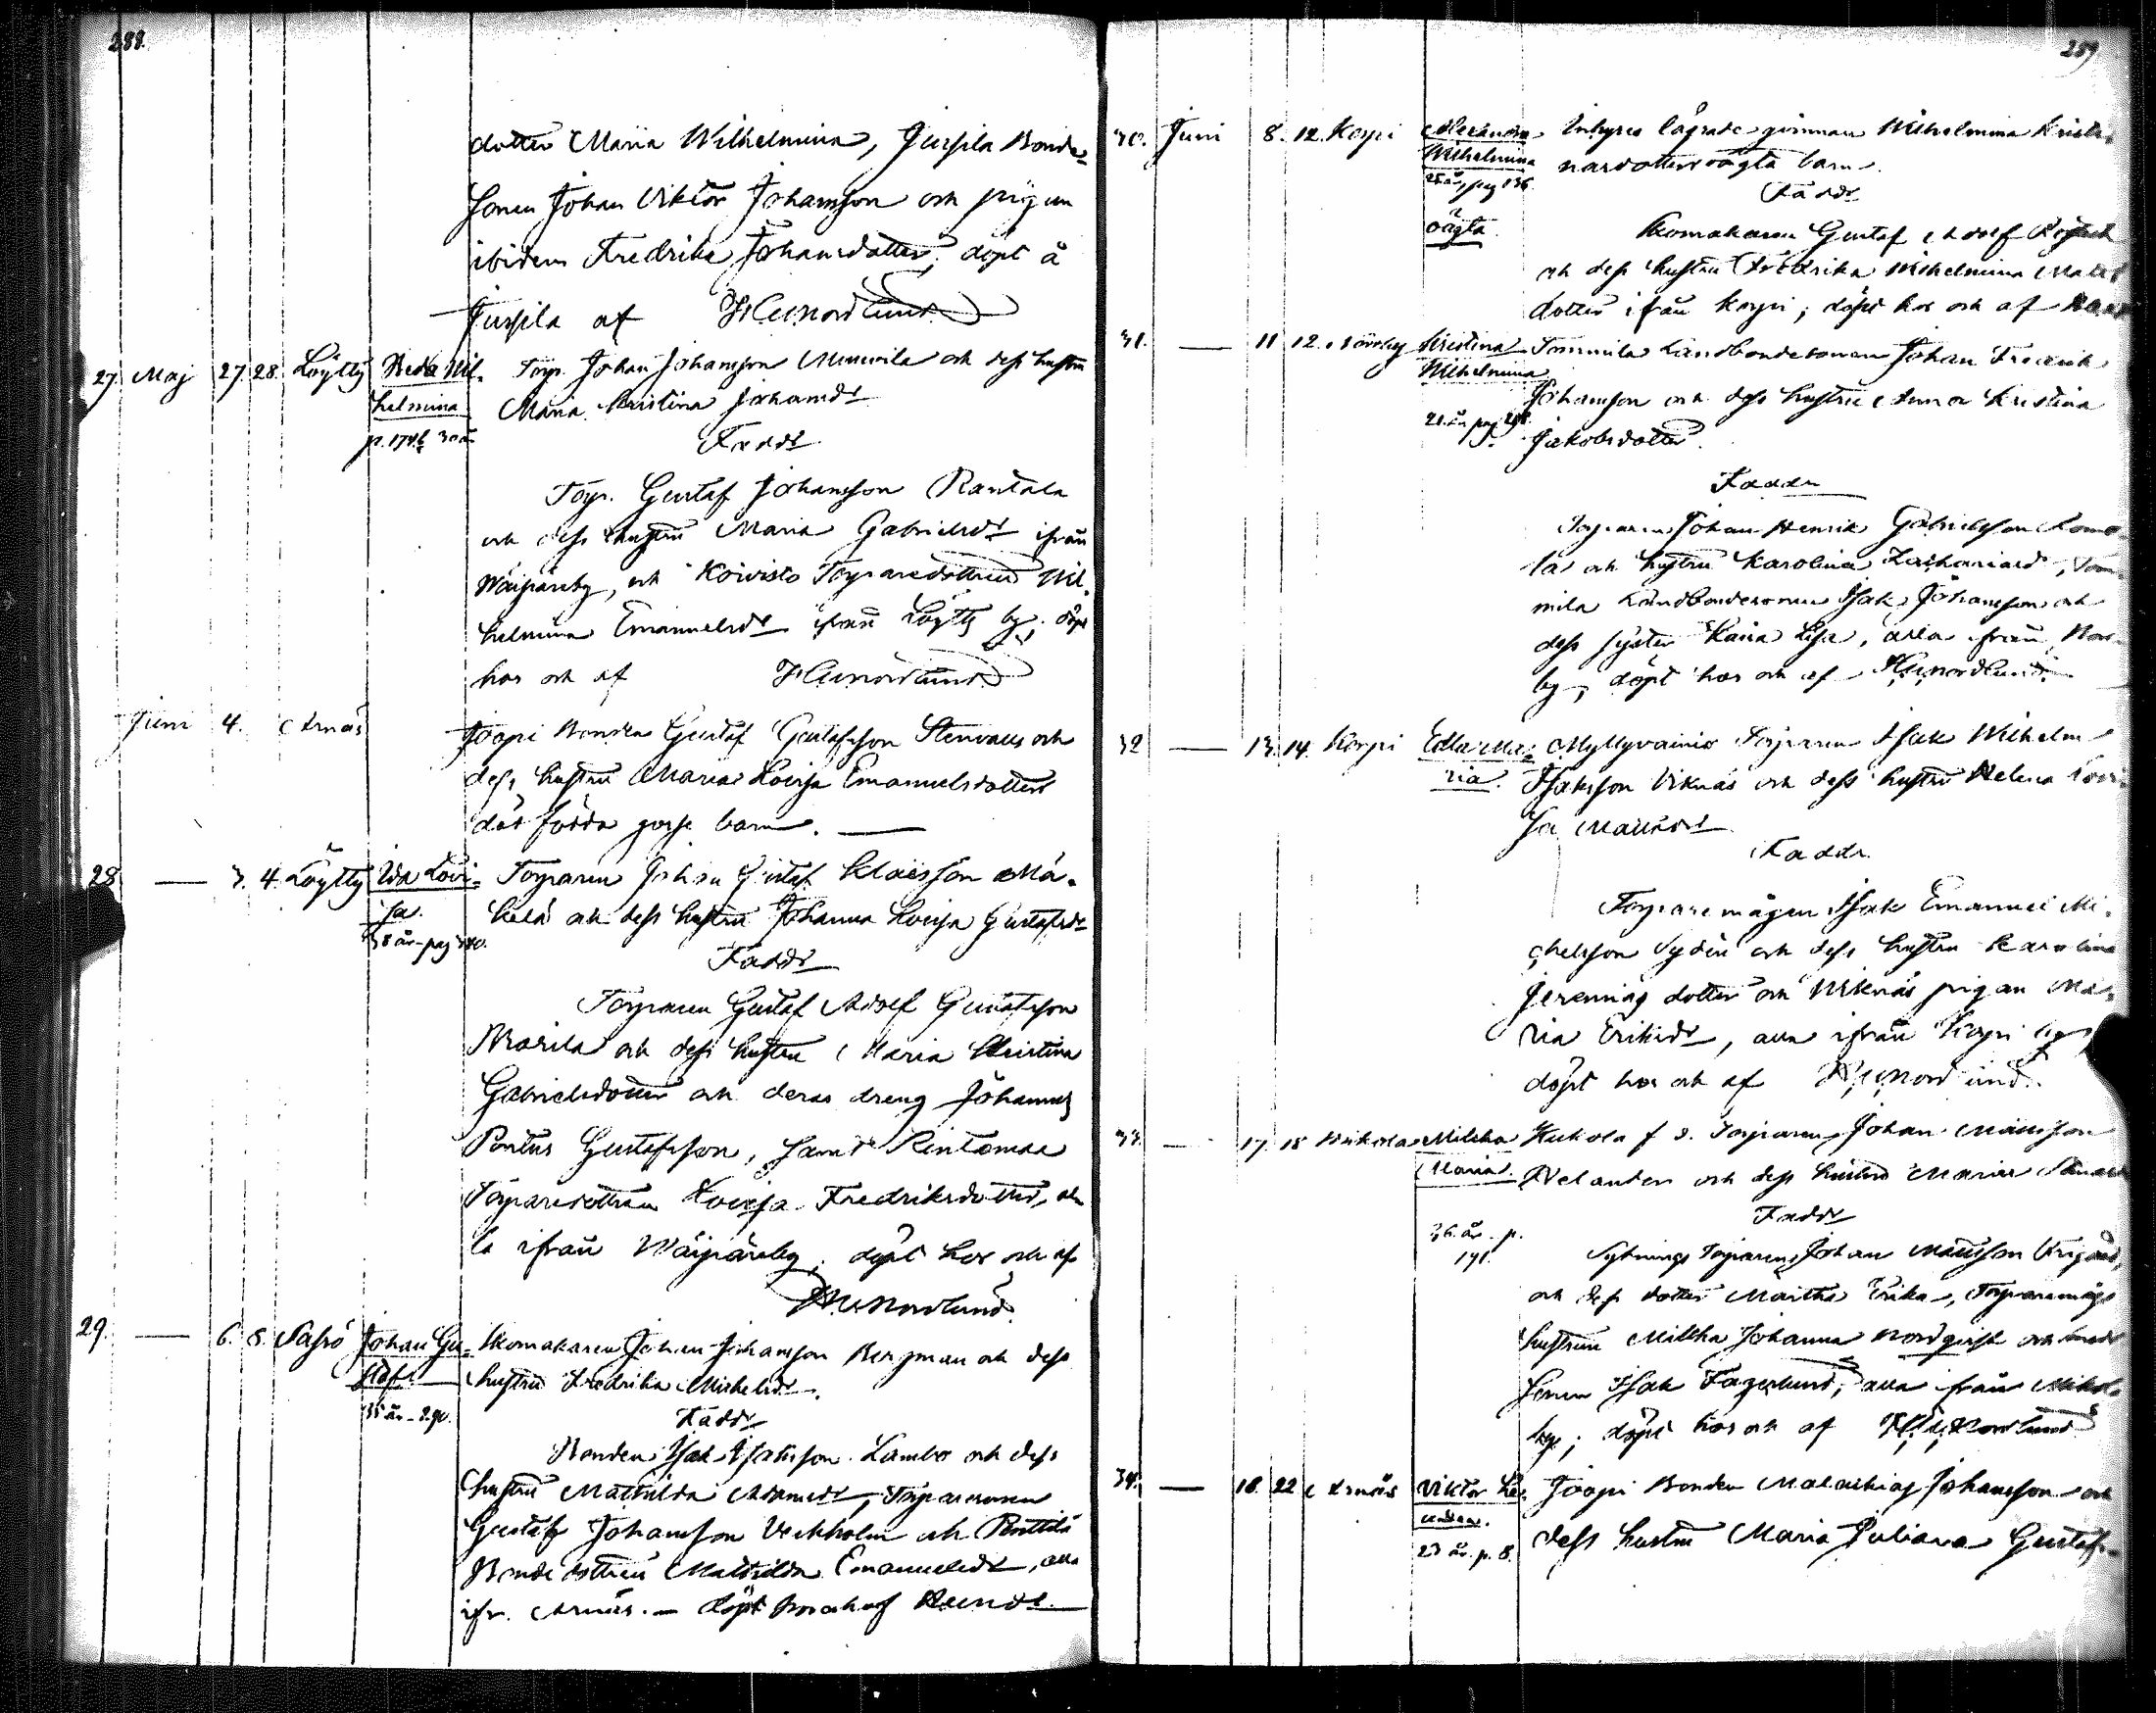 288.
dotter Maria Wilhelmina, Jussila Bonde-
sonen Johan Viktor Johansson och pigan
ibidem Fredrika Johansdotter, döpt å
Jussila af HENordlund
27. Maj 27. 28. Löytty Beda Wil- Torp. Johan Johansson och dess hustru
helmina Maria Kristina Johansdr
p. 174 30 år
Faddr
Torp. Gustaf Johansson Rantala
och dess hustru Maria Gabrielsdr ifrån
Wäipäreby, och Koivisto Torparedottren Wil-
helmina Emanuelsdr ifrån Löytty by; döpt
hos och af HENordlund
Juni 4. Arnäs Joopi Bonden Gustaf Gustafsson Stenvalls och
dess hustru Maria Lovisa Emanuelsdotters
dödfödda gosse barn. —
28 — 3. 4. Löytty Ida Lovi- Torparen Johan Gustaf Klaesson Mä-
sa. kelä och dess hustru Johanna Lovisa Gustafsdr
38 år - pag 340.
Faddr
Torparen Gustaf Adolf Gustafsson
och dess hustru Maria Kristina
Gabrielsdotter och deras dreng Johannes
Pontus Gustafsson, samt Rintamaa
Torparedottren Lovisa Fredriksdotter, al-
la ifrån Wäipäreby; döpt hos och af
HENordlund.
29. — 6. 8. Sassö Johan Gu- Skomakaren Johan Johansson Bergman och dess
staf. hustru Fredrika Michelsdr.
35 år - 290.
Faddr
Bonden Isak Isaksson Lambo och dess
hustru Mathilda Adamsdr, Torparesonen
Gustaf Johansson Veckholm och Penttilä
Bondedottren Mathilda Emanuelsdr, alla
ifr. Arnäs. — döpt hos och af
259
30. Juni 8. 12. Korpi Alexandra Inhyses lägrade qvinnan Wilhelmina Kriste-
Wilhelmina narsdotters oägta barn.
25 år, pag 136.
Faddr
oägta. Skomakaren Gustaf Adolf
och dess hustru Fredrika Wilhelmina
dotter ifrån Korpi; döpt hos och af
31. — 11 12. Norrby Kristina Tommila Landbondesonen Johan Fredrik
Wilhelmina Johansson och dess hustru Anna Kristina
21 år pag 298. Jakobsdotter.
Faddr
Torparen Johan Henrik Gabrielsson
la och hustru Karolina Zachariasd, Tom-
mila Landbondesonen Isak Johansson och
dess syster Kaisa Lisa, alla ifrån Norr-
by; döpt hos och af HENordlund.
32 — 13. 14. Korpi Edla Ma- Myllyvainio Torparen Isak Wilhelm
ria. Isaksson Viknäs och dess hustru Helena Lovi-
sa
Faddr.
Torparemågen Isak Emanuel Mi-
chelsson Sydén och dess hustru Karolina
Jeremias dotter och Viknäs pigan Ma-
ria Eriksdr, alla ifrån Korpi by;
döpt hos och af HENordlund.
33. — 17. 18 Wukola Milka Kukola f. d. Torparen Johan Mattsson
Maria. Velander och dess hustru Maria
36 år. p.
171.
Faddr
Sytnings Torparen Johan Mattsson
och dess dotter Martha Erika, Torparemågs
hustrun Milka Johanna Nordqvist och
sonen Isak Fagerlund, alla ifrån
by; döpt hos och af HENordlund
34. — 18. 22 Arnäs Viktor Le- Joopi Bonden Malachias Johansson och
ander. dess hustru Maria Juliana Gustafs-
23 år. p. 8.